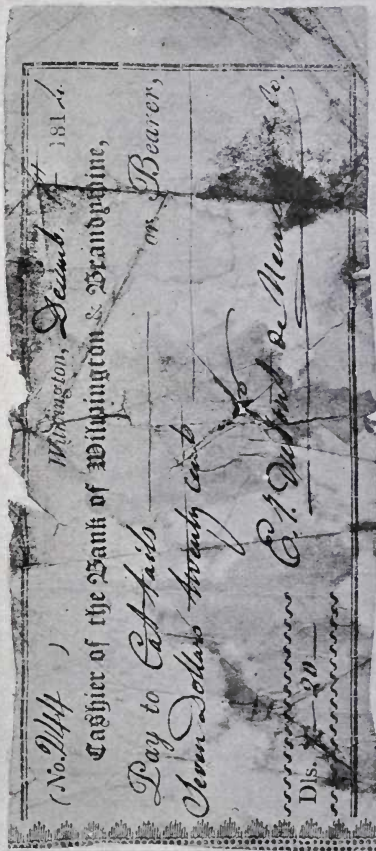 (No. 244 )
Wilmington, Decemb. 181
Cashier of the Bank of Wilmington & Brandywine,
Pay to Cat tails or Bearer,
Seven Dollars twenty cents
E. I. DuPont De Nemours Co.
Dis. 7 20